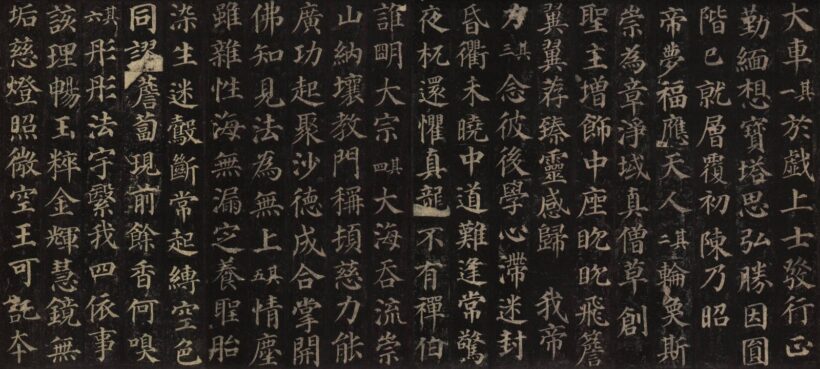 大車其一於戲上士發行正
勤緬想寶塔思弘勝因圓
階已就層覆初陳乃昭
帝夢福應天人其二輪奐斯
崇為章淨域真僧草創
聖主增飾中座眈眈飛簷
翼翼荐臻靈感歸我帝
力其三念彼後學心滯迷封
昏衢未曉中道難逢常驚
夜杌還懼真龍不有禪伯
誰明大宗其四大海吞流崇
山納壤教門稱頓慈力能
廣功起聚沙德成合掌開
佛知見法為無上其五情塵
雖雜性海無漏定養聖胎
染生迷鷇斷常起縛空色
同謬薝蔔現前餘香何嗅
其六彤彤法宇繄我四依事
該理暢玉粹金輝慧鏡無
垢慈燈照微空王可託本